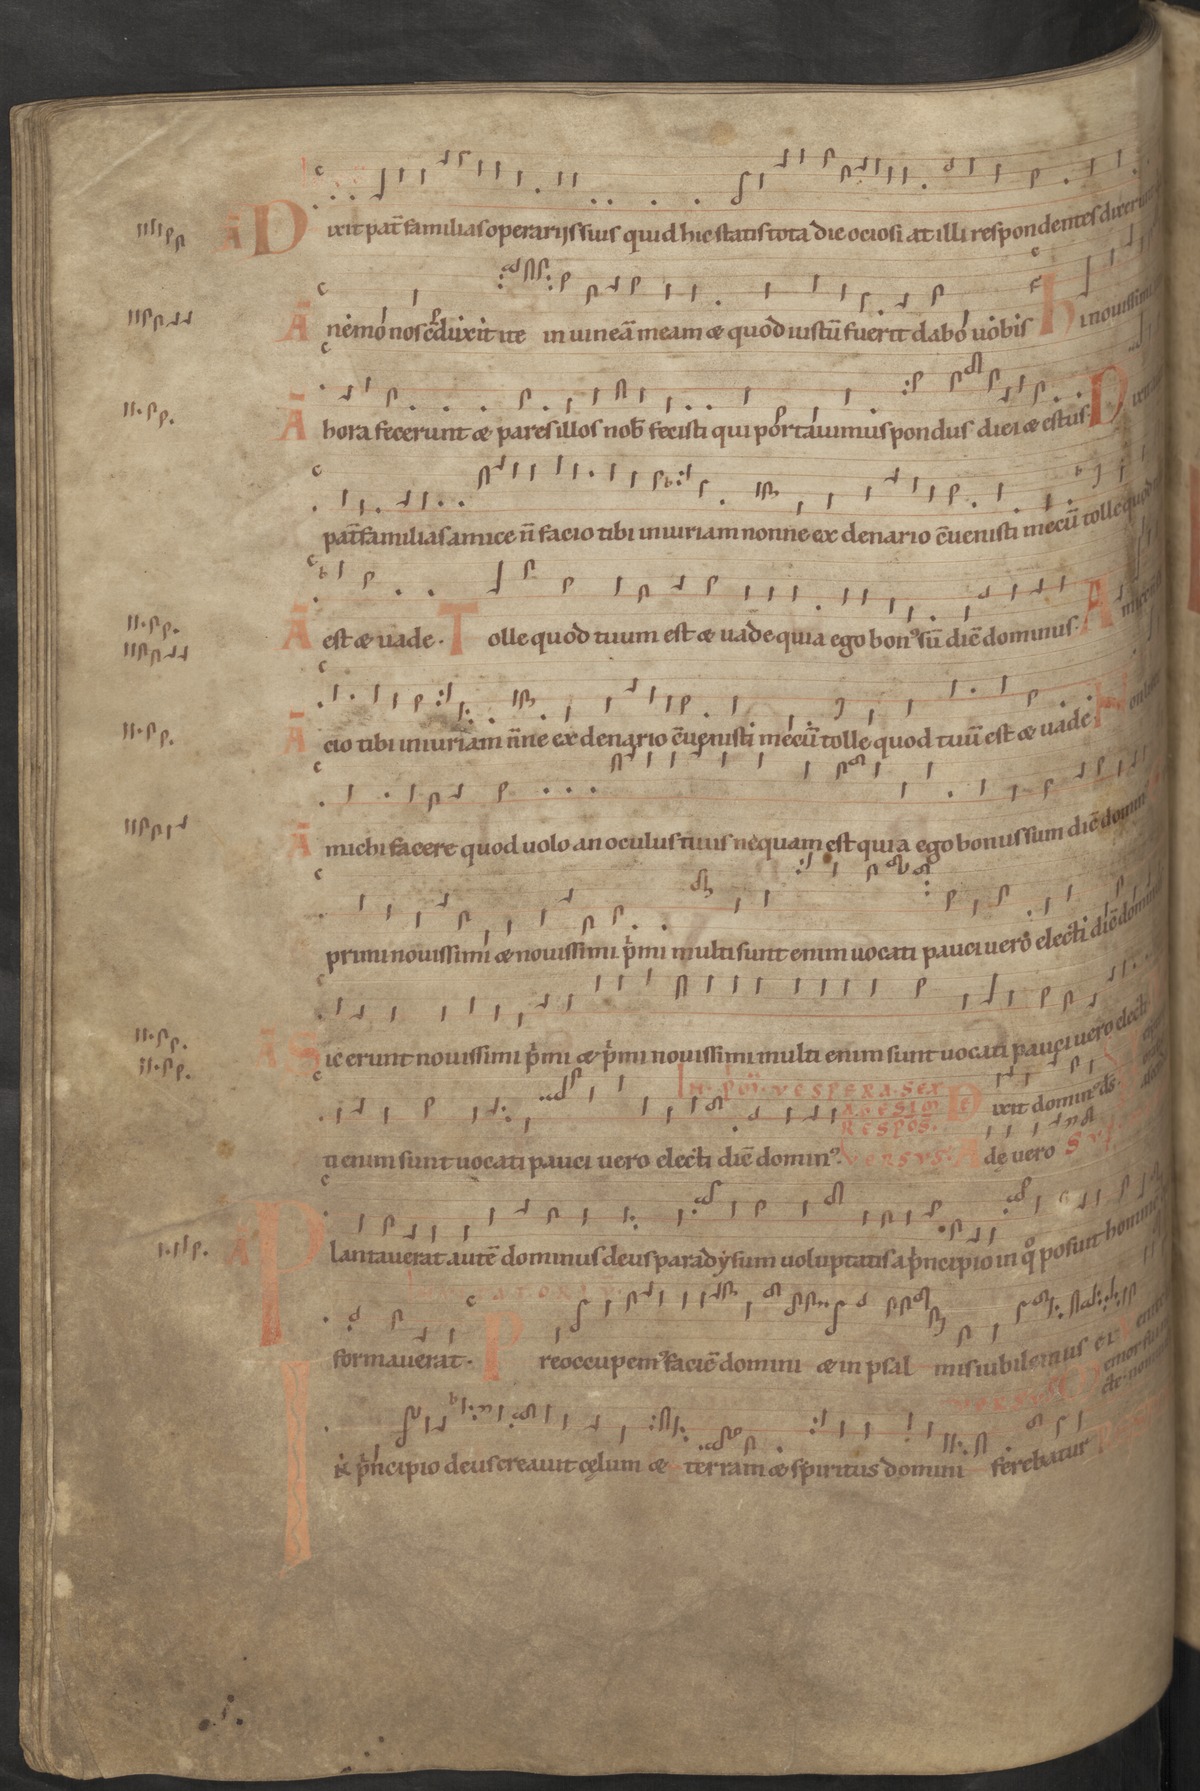 Ā Dixit pat̄familias operarijs suis quid hic statis tota die ociosi at illi respondentes dixerunt
Ā nemo nos c̄duxit ite in uineā meam æ quod iustū fuerit dabo uobis Hi nouissimi
Ā hora fecerunt æ pares illos nob̄ fecisti qui portauimus pondus diei æ estus. Dixit
pat̄familias amice n̄ facio tibi iniuriam nonne ex denario c̄uenisti mecū tolle quod
Ā est æ uade. Tolle quod tuum est æ uade quia ego bonꝰ sū diē dominus. Amice
Ā cio tibi iniuriam n̄ne ex denario c̄uenisti mecū tolle quod tuū est æ uade Non licet
Ā michi facere quod uolo an oculus tuus nequam est quia ego bonus sum diē domin
primi nouissimi æ nouissimi p̄mi multi sunt enim uocati pauci uero elect̄i diē domin
Ā Sic erunt nouissimi p̄mi æ p̄mi nouissimi multi enim sunt uocati pauci uero elect̄i
IN PꝛI. VESPERA. SEX
AGESIM̄ Dixit dominꝰ dꝭ.
RESPOS̄.
ti enim sunt uocati pauci uero elect̄i diē dominꝰ. VERSVS. Ade uero
Ā Plantauerat autē dominus deus paradẏsum uoluptatis a p̄ncipio in q̊ posuit hominē
formauerat. Preoccupemꝰ faciē domini æ in psalmis iubilemus ei.
VERSVS
IN p̄ncipio deus creauit cęlum æ terram æ spiritus domini ferebatur